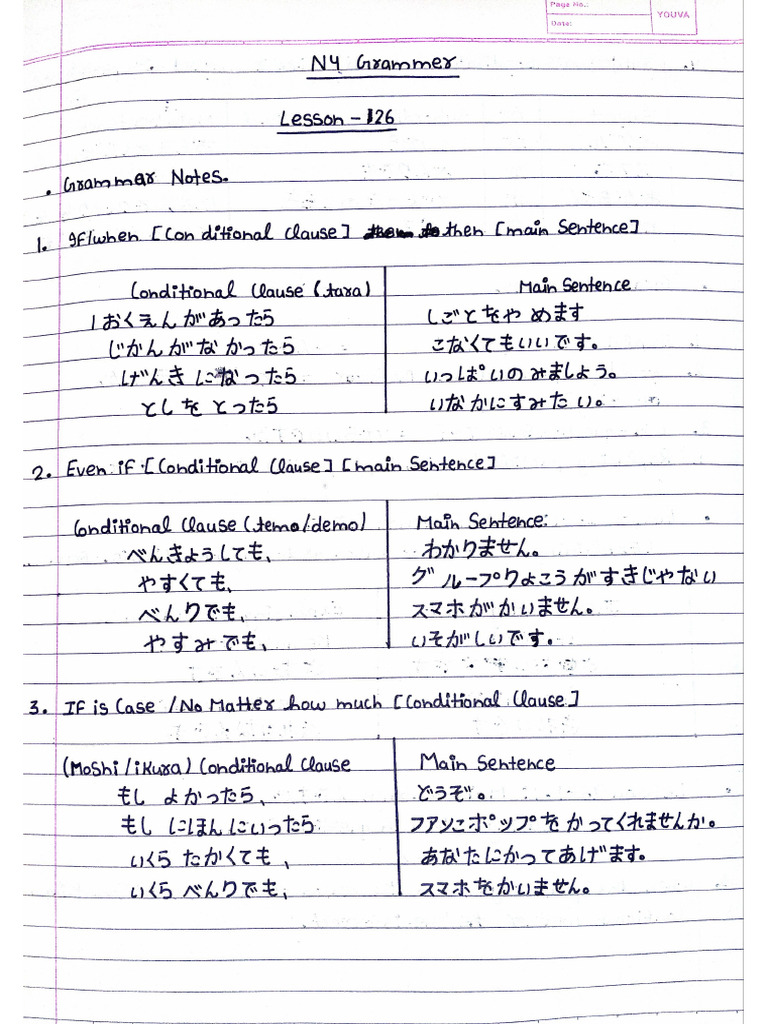 Page No.:
Date:
YOUVA
N4 Grammer
Lesson - 126
. Grammar Notes.
1. If/when [Conditional Clause] then [main Sentence]
Conditional Clause (tara) Main Sentence
1おくえんがあったら しごとをやめます
じかんがなかったら こなくてもいいです。
げんきになったら いっぱいのみましょう。
としをとったら いなかにすみたい。
2. Even if [Conditional Clause] [main Sentence]
Conditional Clause (temo/demo) Main Sentence:
べんきょうしても、 わかりません。
やすくても、 グループりょこうがすきじゃない
べんりでも、 スマホがかいません。
やすみでも、 いそがしいです。
3. If is Case / No Matter how much [Conditional Clause]
(Moshi/ikura) Conditional Clause Main Sentence
もし よかったら、 どうぞ。
もし にほんにいったら ファンこポップをかってくれませんか。
いくら たかくても、 あなたにかってあげます。
いくら べんりでも、 スマホをかいません。